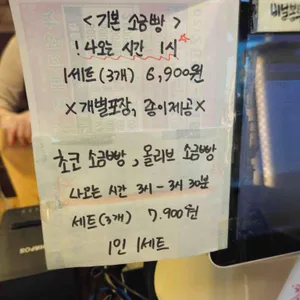 <기본 소금빵>
! 나오는 시간 1시
1세트(3개) 6,900원
×개별포장, 종이제공×
초코 소금빵, 올리브 소금빵
나오는 시간 3시-3시 30분
세트(3개) 7,900원
1인 1세트